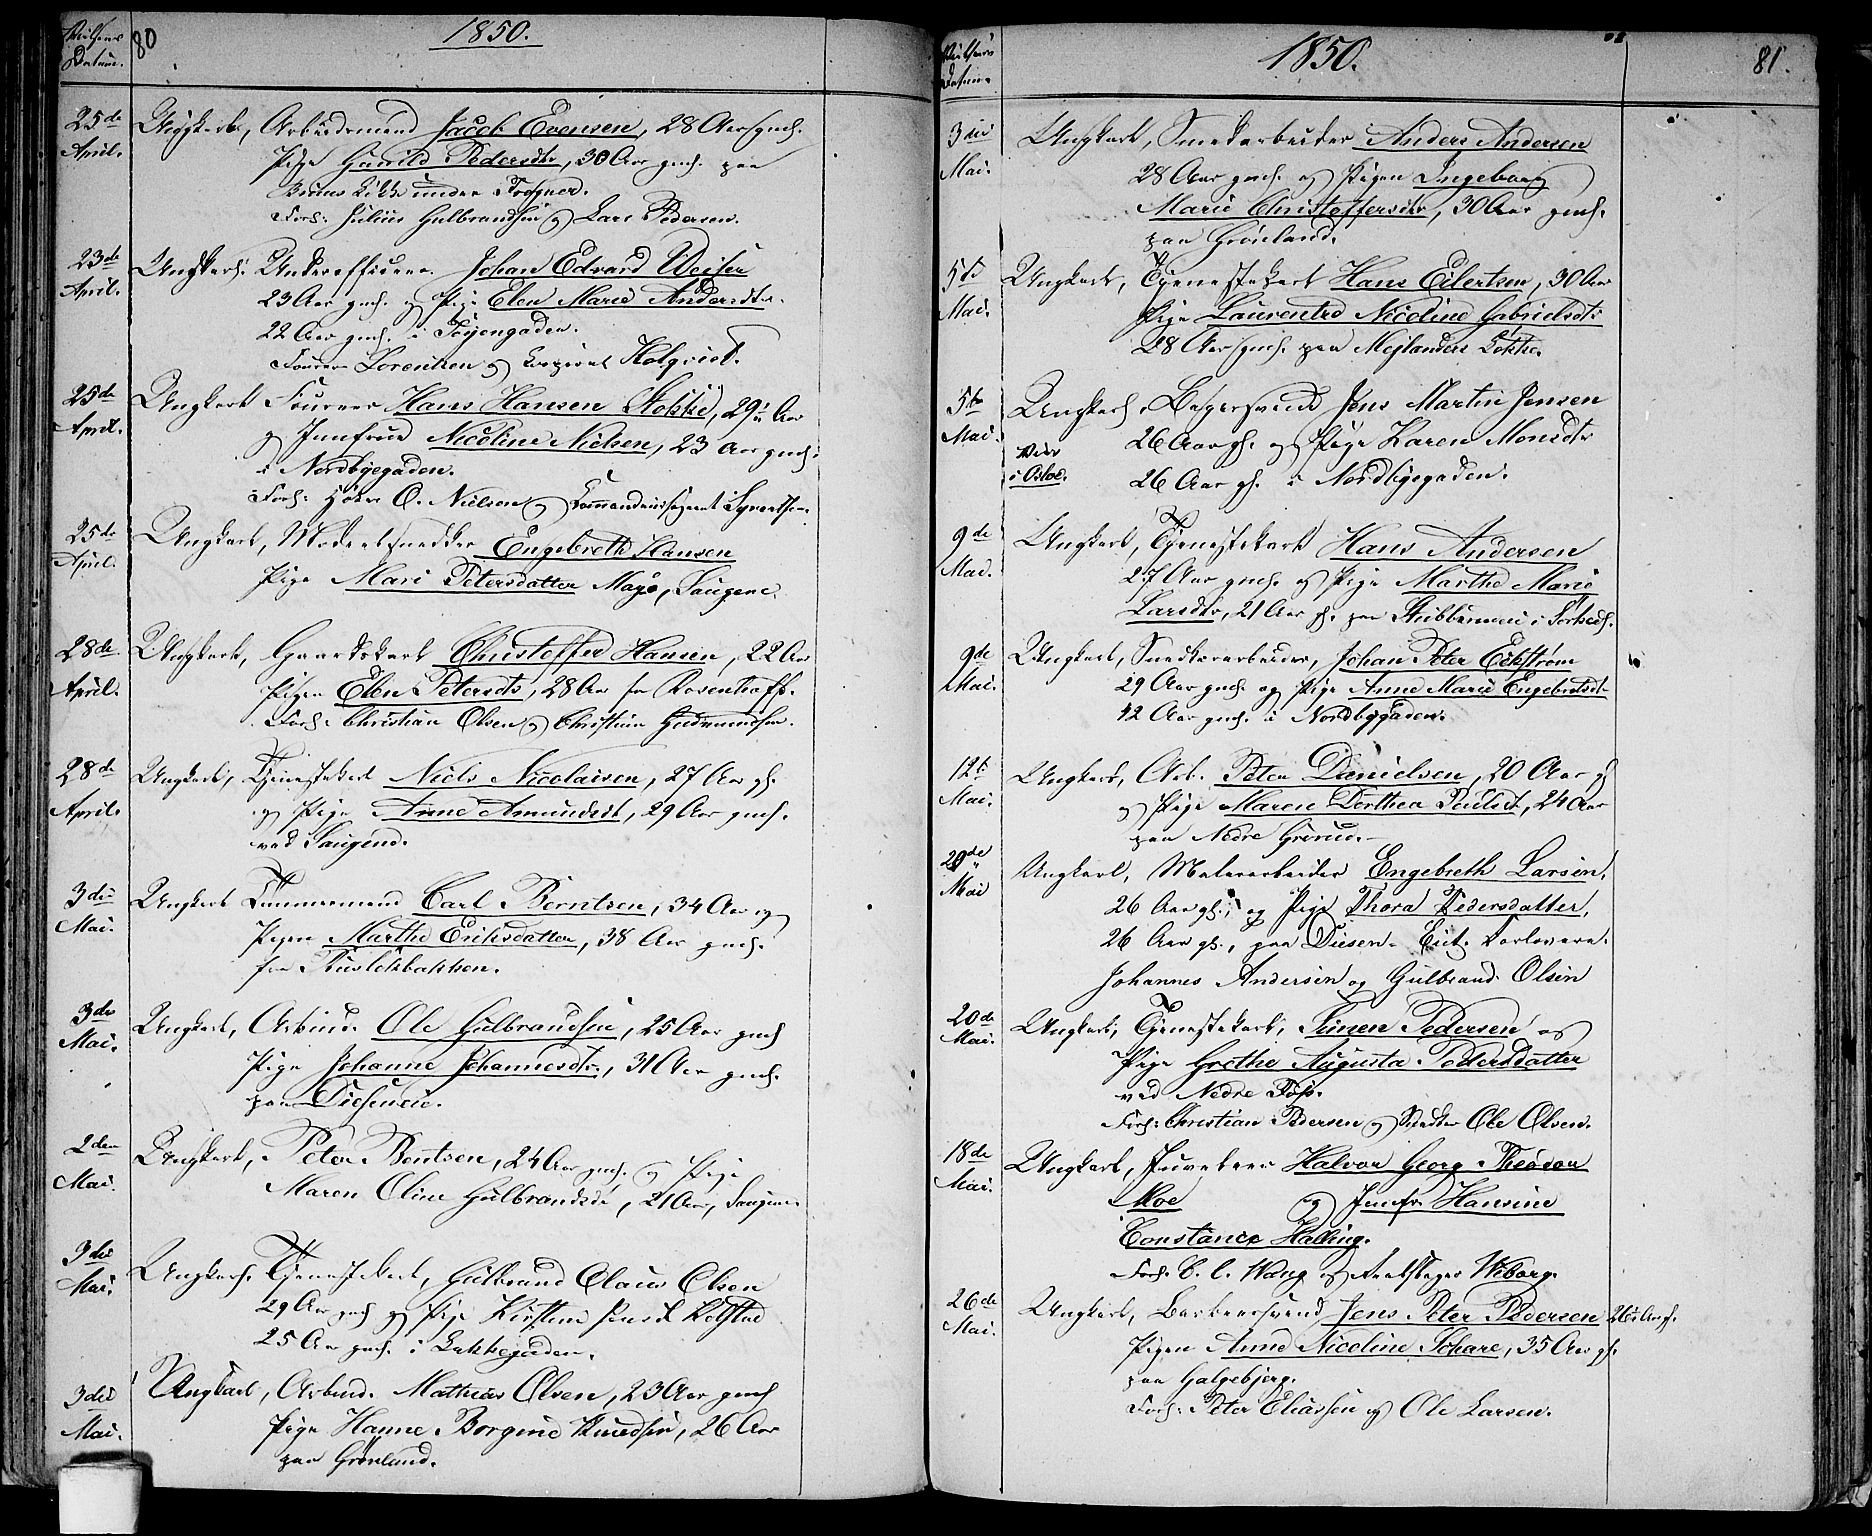 80
1850.
Datum.
25de April.
Ungkarl, Arbeidsmand Jacob Evensen, 28 Aar gmh.
Pige Gunild Pedersdtr, 30 Aar gmh. paa
Løkke under Frogner.
Forl: Julius Gulbrandsen og Lars Pedersen.
23de April.
Ungkarl. Underofficeer Johan Edvard Weiser
23 Aar gmh. og Pige Elen Marie Andersdtr.
22 Aar gmh. i Tøyengaden.
Fourer Lorentzen og Corporal Holqvist.
25de April.
Ungkarl Fourer Hans Hansen Stokke, 29 Aar
og Jomfrue Nicoline Nielsen, 23 Aar gmh.
i Nordbyegaden.
Forl: Høker O. Nielsen og Commandeersergeant Syvertsen.
25de April.
Ungkarl, Modelsnedker Engebreth Hansen
Pige Mari Petersdatter Maye, Saugene.
28de April.
Ungkarl, Gaardskarl Christoffer Hansen, 22 Aar
Pigen Elen Petersdtr, 28 Aar fra Rosenhoff.
Forl: Christian Olsen og Christian Gudmundsen.
28de April.
Ungkarl, Tjenestekarl Niels Nicolaisen, 27 Aar gh.
og Pige Anne Amundsdt, 29 Aar gmh.
ved Saugene.
3die Mai.
Ungkarl Tømmermand Carl Berntsen, 34 Aar og
Pigen Marthe Eriksdatter, 38 Aar gmh.
fra Ruseløkbakken.
3die Mai.
Ungkarl, Arbeid. Ole Gulbrandsen, 25 Aar gmh
Pige Johanne Johannesdtr., 31 Aar gmh.
paa Dieseneie.
2den Mai.
Ungkarl, Peter Bentsen, 24 Aar gmh. og Pige
Maren Oline Gulbrandsdt, 21 Aar, Saugene
3die Mai.
Ungkarl. Tjenestekarl, Gulbrand Claus Olsen
29 Aar gmh og Pige Kirstine Jensdt
25 Aar gmh. i Lakkegaden.
3die Mai.
Ungkarl, Arbeid. Mathias Olsen, 23 Aar gmh
Pige Hanne Borgine Knudsen, 26 Aar
paa Grønland.
1850.
81.
3die Mai.
Ungkarl, Smedearbeider Anders Andersen
28 Aar gmh. og Pigen Ingeborg
Marie Christoffersdtr, 30 Aar gmh.
paa Grønland.
5te Mai.
Ungkarl, Tjenestekarl Hans Eilertsen, 30 Aar
Pige Laurentze Nicoline Gabrielsdtr
28 Aar gmh. paa Mejlænders Løkke.
5te Mai.
Viet i Osloe.
Ungkarl, Bagersvend Jens Martin Jensen
26 Aar gh. og Pige Karen Monsdtr
26 Aar gh. i Nordbyegaden.
9de Mai.
Ungkarl, Tjenestekarl Hans Andersen
27 Aar gmh. og Pige Marthe Marie
Larsdtr, 21 Aar gh. paa Stubberud i Sørked.
9de Mai.
Ungkarl, Snedkerarbeider, Johan Peter Eckstrøm
29 Aar gmh. og Pige Anne Marie Engebretsdt
42 Aar gmh. i Nordbygaden.
12te Mai.
Ungkarl, Arb. Peter Danielsen, 20 Aar gh
og Pige Maren Dorthea Paulsdt, 24 Aar
paa Nedre
20de Mai
Ungkarl, Malerarbeider Engebreth Larsen,
26 Aar gh., og Pige Thora Pedersdatter,
26 Aar gh., paa Diesen-Eiet. Forlovere.
Johannes Andersen og Gulbrand Olsen
20de Mai.
Ungkarl, Tjenestekarl, Simen Pedersen og
Pige Grethe Augusta Pedersdatter
ved Nedre Foss.
Forl: Christian Pedersen og Snedker Ole Olsen.
18de Mai.
Ungkarl, Juveleer Halvor Georg Theodor
Moe og Jomfr. Hansine
Constance Halling.
Forl. C. C. Wang og Wiborg.
26de Mai.
Ungkarl, Barbeersvend Jens Peter Pedersen 26 Aar g.
Pigen Anne Nicoline Schare, 35 Aar gh.
paa Galgebjerg.
Forl: Peter Eliassen og Ole Larsen.